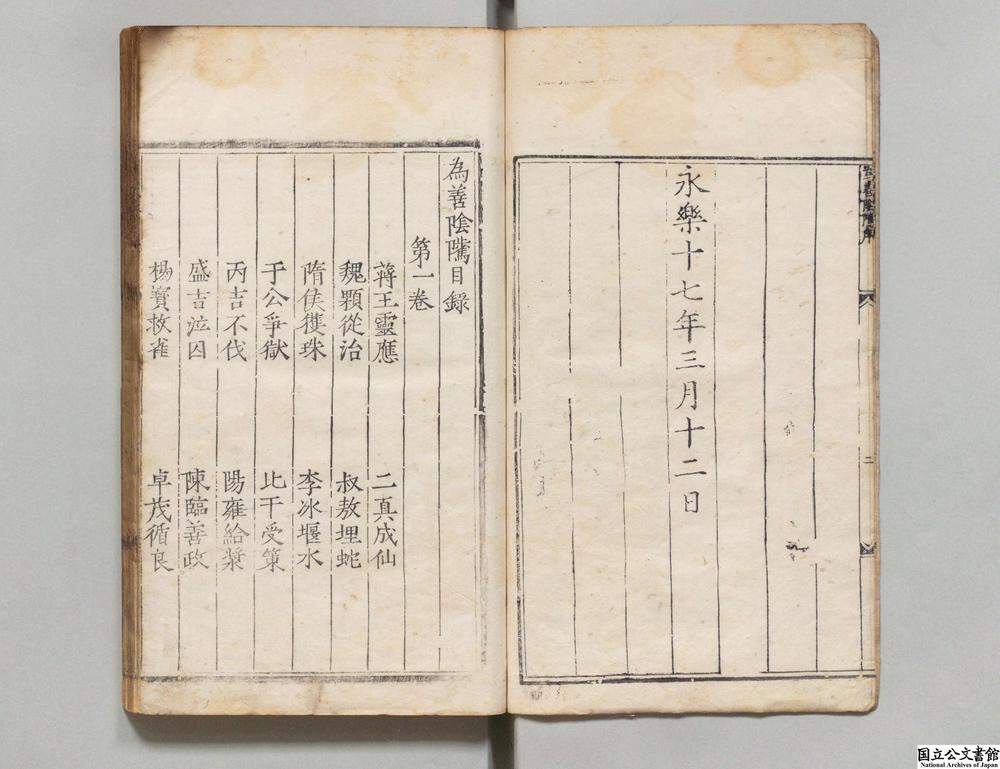 為善陰隲序
二
永樂十七年三月十二日
為善陰隲目錄
第一卷
蔣王靈應 二真成仙
魏顆從治 叔敖埋蛇
隋侯獲珠 李冰堰水
于公爭獄 比干受策
丙吉不伐 陽雍給漿
盛吉泣囚 陳臨善政
楊寶救雀 卓茂循良
国立公文書館
National Archives of Japan